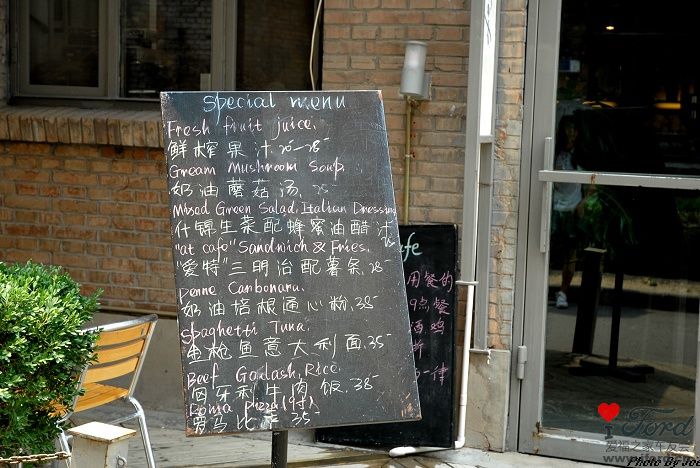 special menu
Fresh fruit juice.
鲜榨果汁 20-28-
Gream Mushroom Soup.
奶油蘑菇汤. 25-
Mixsad Green Salad, Italian Dressing
什锦生菜配蜂蜜油醋汁
"at cafe" Sandwich & Fries.
"爱特"三明治配薯条. 28-
Penne Carbonara.
奶油培根通心粉. 35-
Spaghetti Tuna.
金枪鱼意大利面. 35-
Beef Goulash, Rice
匈牙利牛肉饭. 38-
Roma pizza
罗马比萨 35-
fe
用餐的
9点餐
酒鸡
折
一律
I ford
爱福之家车友会
Photo By